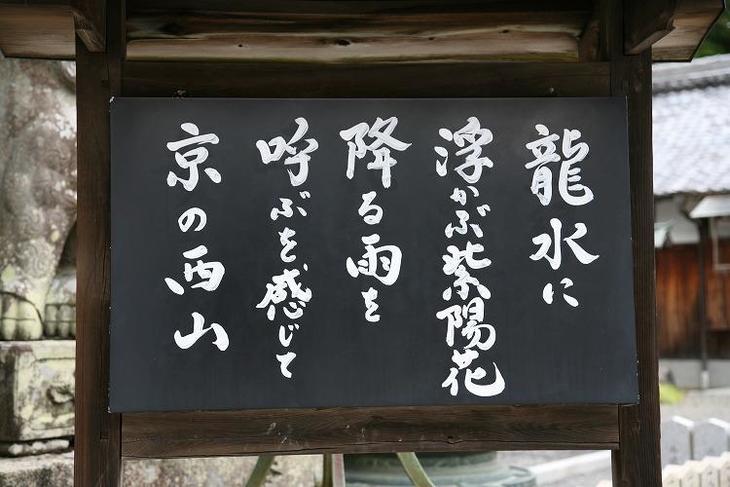 龍水に
浮かぶ紫陽花
降る雨を
呼ぶを感じて
京の西山